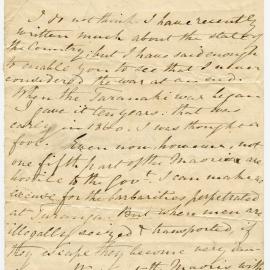 I do not think I have recently
written much about the state of
the Country, but I have said enough
to enable you to see that I never
considered the war at an end.
When the Taranaki war began
I gave it ten years. that was
early in 1860. I was thought a
fool. Even now, however, not
one fifth part of the Maories are
hostile to the Govt. I can make
excuse for the barbarities perpetrated
at Turanga. But where men are
illegally seized & transported, if
they escape they become very
with